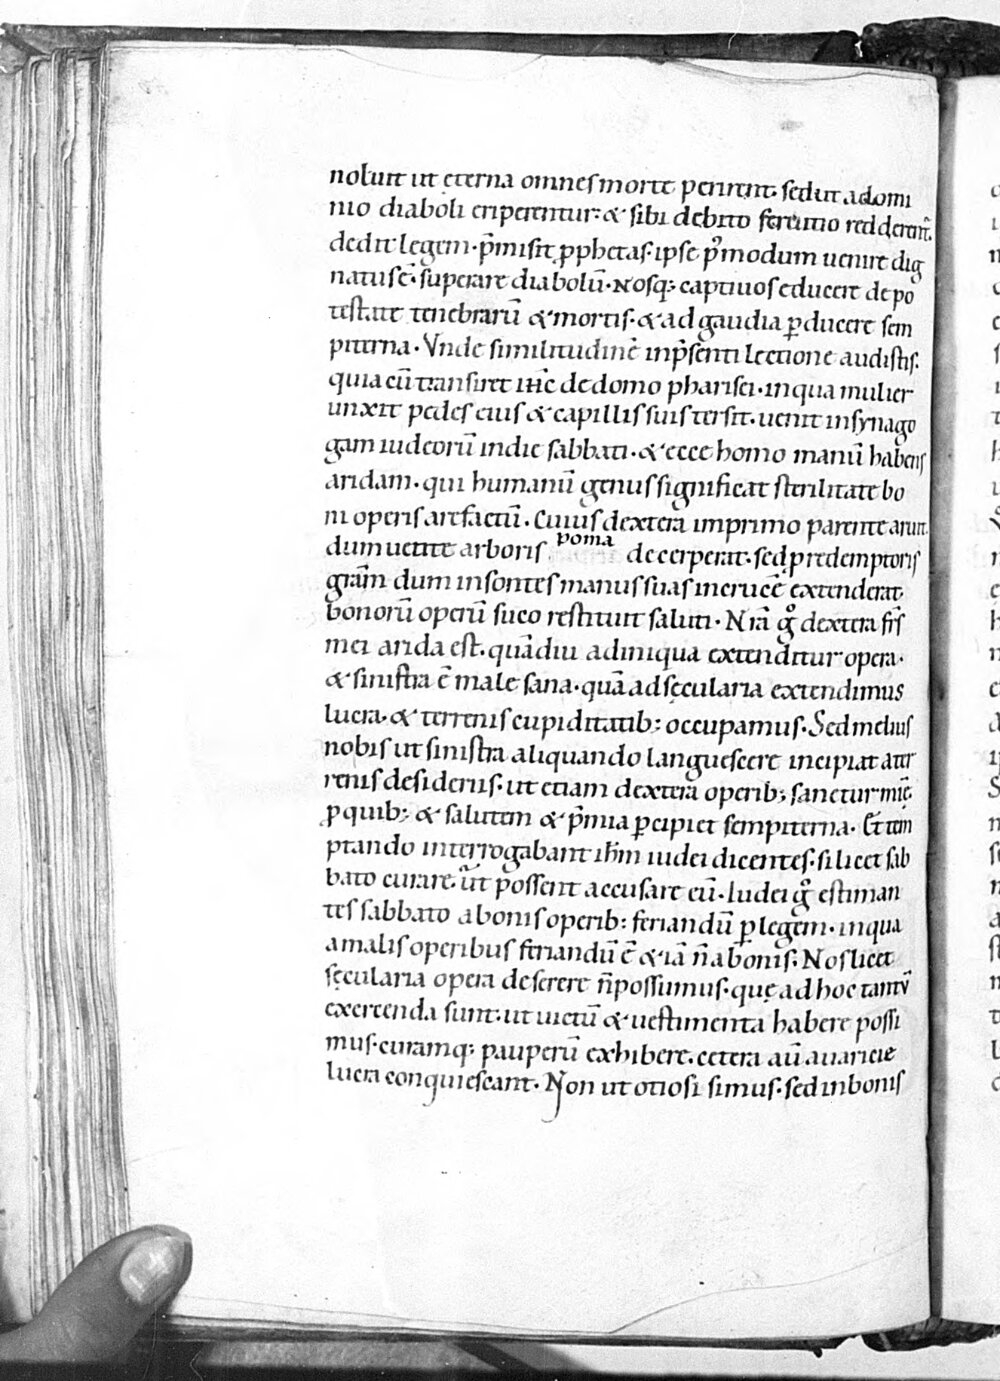 noluit ut ęterna omnes morte perirent. sed ut a domi
nio diaboli eriperentur: & sibi debito seruitio redderent̃.
dedit legem. p̄misit p̱phetas. ipse p̱ modum uenire dig
natus ē. superare diabolū. Nosq; captiuos educere de po
testate tenebrarū & mortis. & ad gaudia p̱ducere sem
piterna. Vnde similitudinē in p̄senti lectione audistis.
quia cū transiret ihc̄ de domo pharisei. in qua mulier
unxit pedes eius & capillis suis tersit. uenit in synago
gam iudeorū in die sabbati. & ecce homo manū habens
aridam. qui humanū genus significat sterilitate bo
ni operis arefactū. Cuius dextera in primo parente aruit.
dum uetite arboris poma decerperat. sed p̱ redemptoris
grām dum insontes manus suas in cruce extenderat
bonorū operū suco restituit saluti. Nrā gͦ dextera frs̄
mei arida est. quādiu ad iniqua extenditur opera.
& sinistra ē male sana. quā ad sęcularia extendimus
lucra. & terrenis cupiditatib; occupamus. Sed melius
nobis ut sinistra aliquando languescere incipiat a ter
renis desideriis. ut etiam dextera operib; sanctur mīe.
p̱ quib; & salutem & p̄mia p̱cipiet sempiterna. Et tem
ptando interrogabant ihm̄ iudei dicentes. si licet sab
bato curare. ut possent accusare eū. Iudei gͦ estiman
tes sabbato a bonis operib: feriandū p̱ legem. in qua
a malis operibus feriandū ē & iā n̄ a bonis. Nos licet
sęcularia opera deserere n̄ possumus. quę ad hoc tantū
exercenda sunt. ut uictū & uestimenta habere possi
mus. curamq; pauperū exhibere. cetera aū auaricie
lucra conquiescant. Non ut otiosi simus. sed in bonis